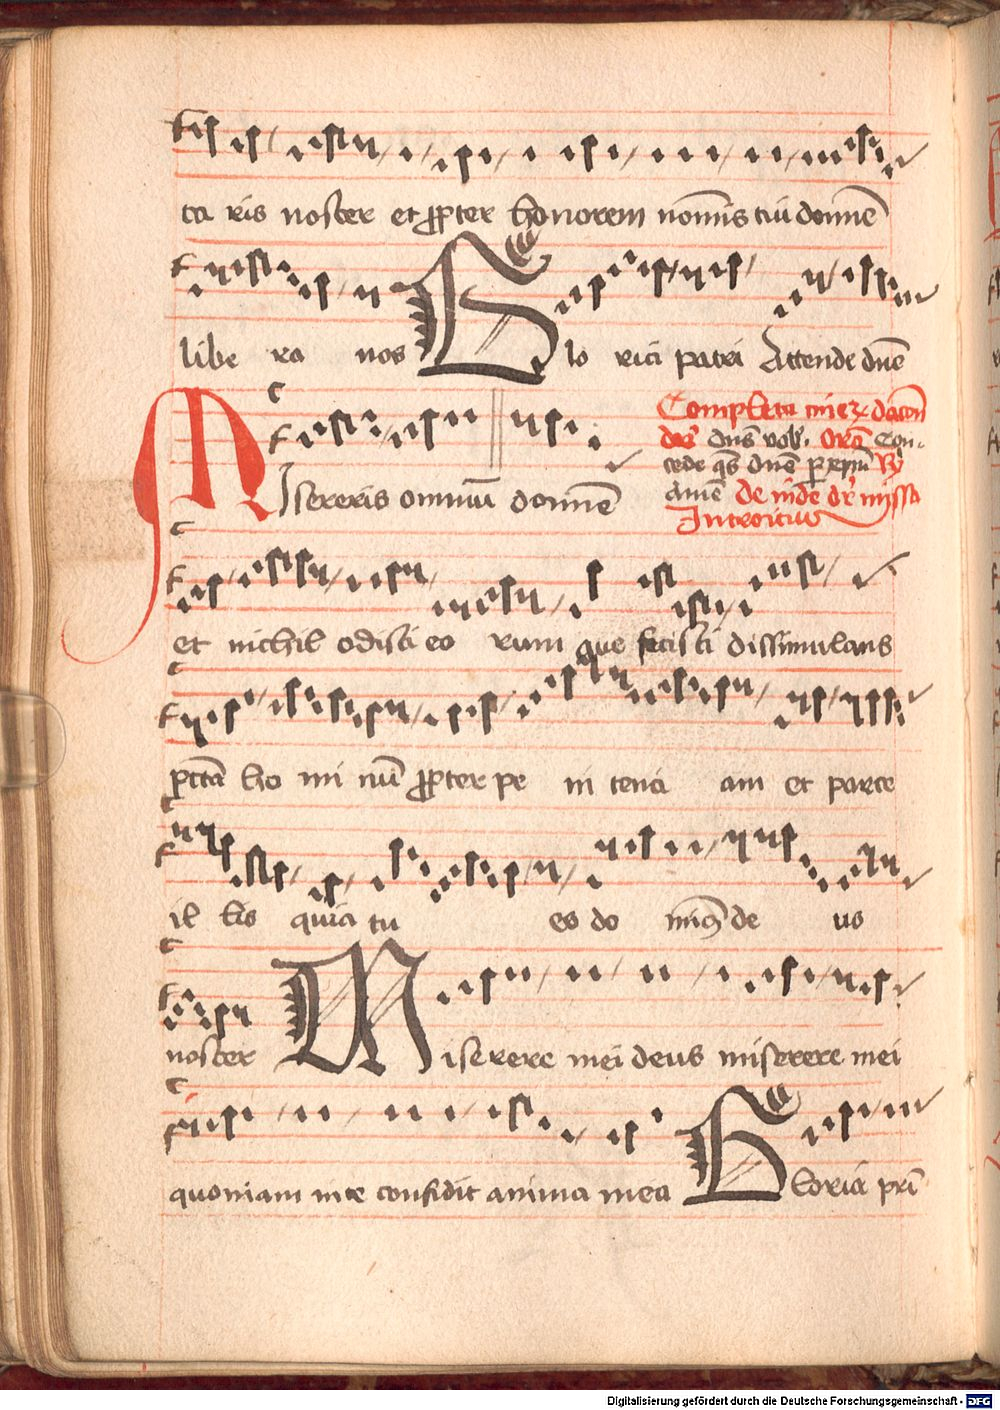 ta ris noster et ꝓpter honorem nom̄is tui domīe
libe ra nos Glo ria patri Attende dn̄e
Completa
dn̄s vob̄. Orō Con-
cede qs̄ dn̄e
amē de inde dr̄ missa
Introitus
Misereris omniū domīe
et nichil odisti eo rum que fecisti dissimulans
pctā ho mi nū ꝓpter pe ni tenci am et parce
il lis quia tu es do min9 de us
noster Miserere mei deus miserere mei
quoniam in te confidit anima mea Gloria pri̅
Digitalisierung gefördert durch die Deutsche Forschungsgemeinschaft - DFG